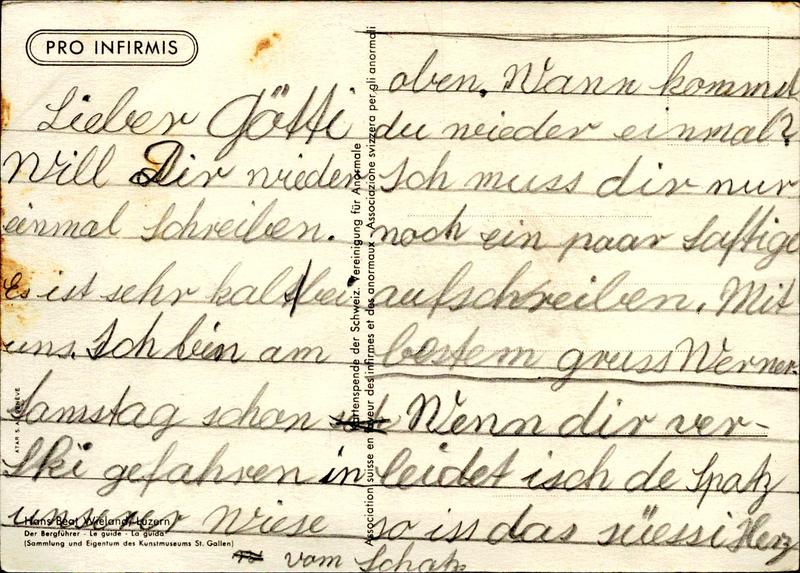 PRO INFIRMIS
Lieber Götti
Will Dir wieder
einmal Schreiben.
Es ist sehr kalt bei
uns. Ich bin am
Samstag schon
Ski gefahren in
unserer Wiese
oben. Wann kommst
du wieder einmal?
Ich muss dir nur
noch ein paar Saftige
aufschreiben. Mit
bestem gruss Werner.
Wenn dir ver-
leidet isch de Spatz
so iss das süessi Herz
vom Schatz
Hans Beat Wieland, Luzern
Der Bergführer - Le guide - La guida
(Sammlung und Eigentum des Kunstmuseums St. Gallen)
ATAR S.A. GENÈVE
Kartenspende der Schweiz. Vereinigung für Anormale
Association suisse en faveur des infirmes et des anormaux - Associazione svizzera per gli anormali